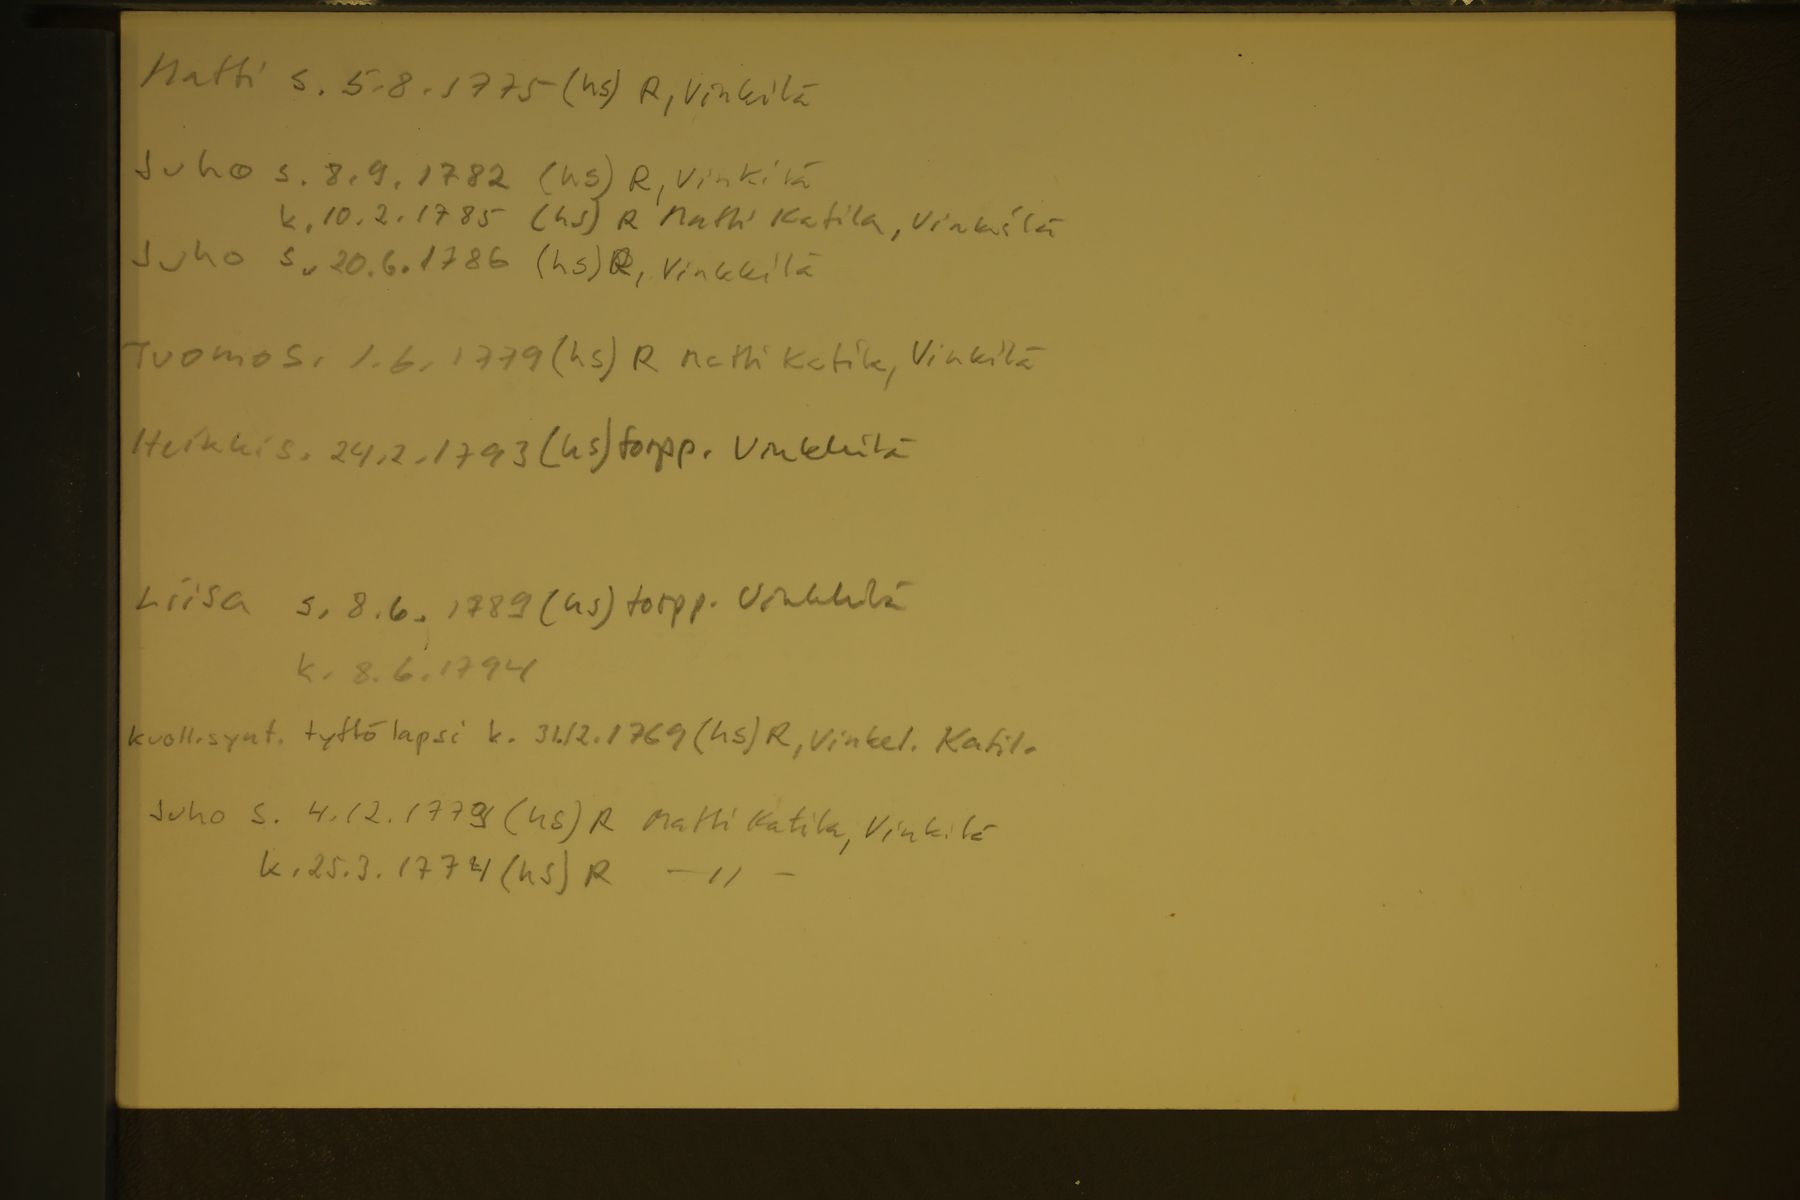 Matti s. 5.8.1775 (hs) R, Vinkilä
Juho s. 8.9.1782 (hs) R, Vinkilä
k. 10.2.1785 (hs) R Matti Katila, Vinkilä
Juho s. 20.6.1786 (hs) R, Vinkkilä
Tuomo s. 1.6.1779 (hs) R Matti Katila, Vinkilä
Heikki s. 24.2.1793 (hs) torpp. Vinkkilä
Liisa s. 8.6.1789 (hs) torpp. Vinkkilä
k. 8.6.1794
kuoll.synt. tyttölapsi k. 31.12.1769 (hs) R, Vinkel. Katil.
Juho s. 4.12. (hs) R Matti Katila, Vinkilä
k. 25.3.1774 (hs) R —"—